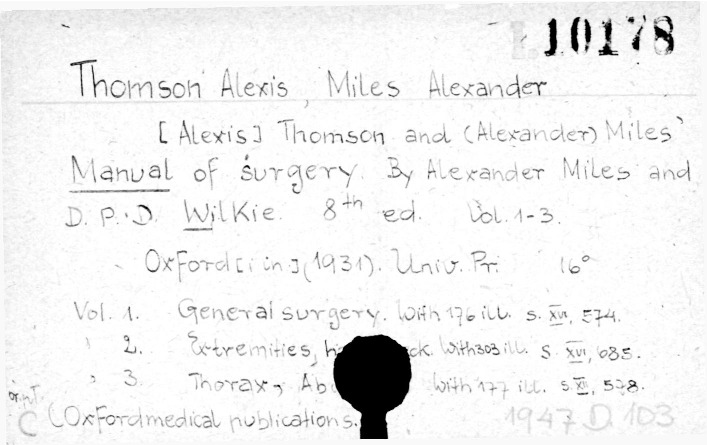 L 10178
Thomson Alexis, Miles Alexander
[Alexis] Thomson and (Alexander) Miles'
Manual of surgery. By Alexander Miles and
D. P. D. Wilkie. 8th ed. Vol. 1-3.
Oxford [in] (1931). Univ. Pr. 16°
Vol. 1. General surgery. With 176 ill. S. XVI, 574.
" 2. Extremities, h ck. With 303 ill. S. XVI, 685.
" 3. Thorax, Ab With 177 ill. S. XII, 578.
C (Oxford medical publications.
1947 D. 103